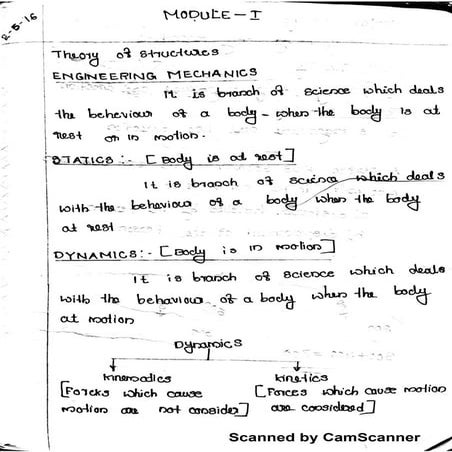 2-5-16
MODULE-I
Theory of structures
ENGINEERING MECHANICS
It is branch of science which deals
the beheviour of a body - when the body is at
rest or in motion.
STATICS :- [Body is at rest]
It is branch of science which deals
with the behaviour of a body when the body
at rest
DYNAMICS:- [Body is in motion]
It is branch of science which deals
with the behaviour of a body when the body
at motion
Dynamics
kinematics kinetics
[Forcks which cause [Forces which cause motion
motion are not consider] are considered]
Scanned by CamScanner